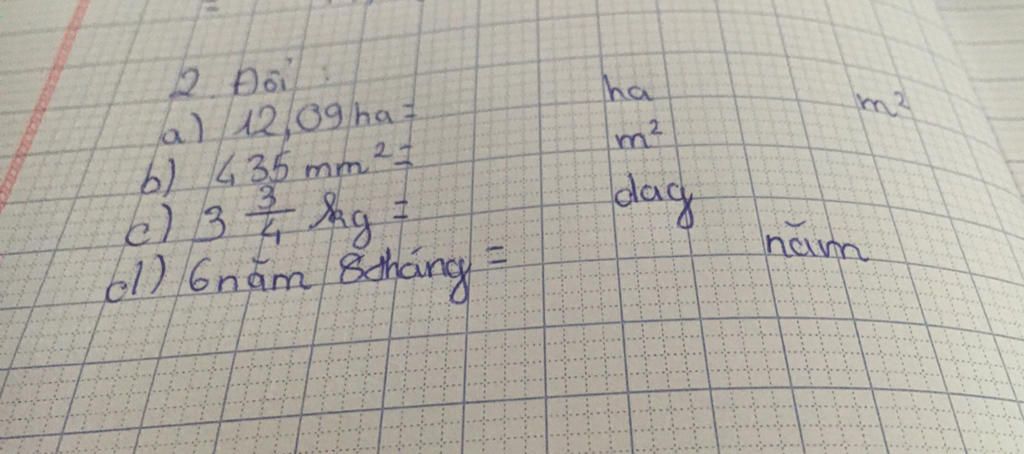 2. Đổi :
a) 12,09 ha = ha m²
b) 435 mm² = m²
c) 3 3/4 kg = dag
d) 6 năm 8 tháng = năm